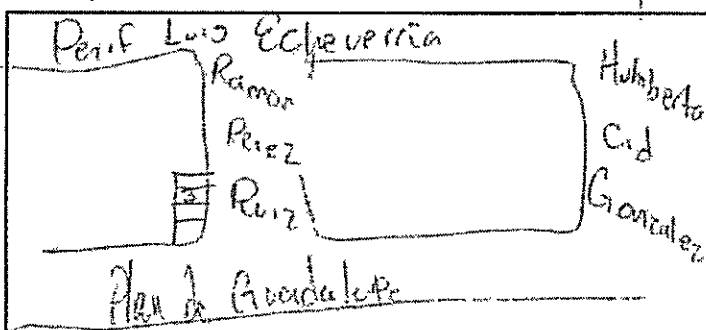 Perif Luis Echeverría
Ramon
Perez
Ruiz
3
Humberto
Cid
Gonzalez
Plan de Guadalupe